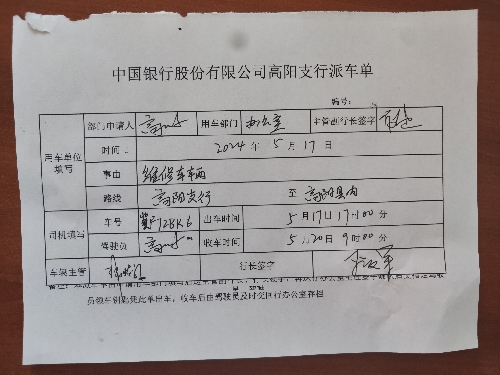 中国银行股份有限公司高阳支行派车单
编号:
用车单位填写 部门申请人 用车部门 办公室 主管副行长签字
时间 2024 年 5 月 17 日
事由 维修车辆
路线 高阳支行 至 高阳县内
司机填写 车号 出车时间 5月17日17时00分
驾驶员 收车时间 5月20日9时00分
车辆主管 行长签字
员领车钥匙凭此单出车，收车后由驾驶员及时交回行办公室存档